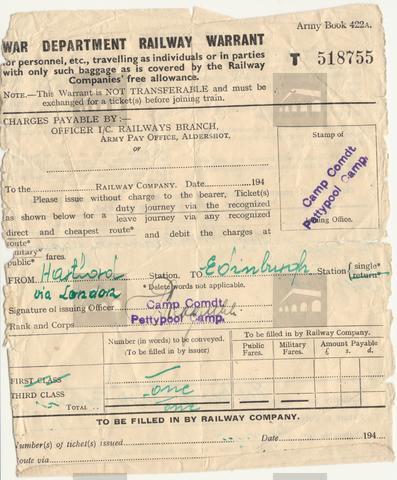 Army Book 422A.
WAR DEPARTMENT RAILWAY WARRANT
for personnel, etc., travelling as individuals or in parties
with only such baggage as is covered by the Railway
Companies' free allowance.
T 518755
NOTE.—This Warrant is NOT TRANSFERABLE and must be
exchanged for a ticket(s) before joining train.
CHARGES PAYABLE BY:—
OFFICER I/C. RAILWAYS BRANCH,
ARMY PAY OFFICE, ALDERSHOT,
OR
Stamp of
Camp Comdt
Pettypool Camp.
Issuing Office.
To the RAILWAY COMPANY. Date 194
Please issue without charge to the bearer, Ticket(s)
as shown below for a duty journey via the recognized
leave journey via any recognized
direct and cheapest route* and debit the charges at
route*
military*
public* fares.
FROM Hartford Station. TO Edinburgh Station (single*
return*
via London
*Delete words not applicable.
Signature of issuing Officer
Camp Comdt.
Rank and Corps
Pettypool Camp.
Number (in words) to be conveyed.
(To be filled in by issuer)
To be filled in by Railway Company.
Public Fares.
Military Fares.
Amount Payable
£ s. d.
FIRST CLASS
THIRD CLASS one
TOTAL one
TO BE FILLED IN BY RAILWAY COMPANY.
Number(s) of ticket(s) issued Date 194
Route via